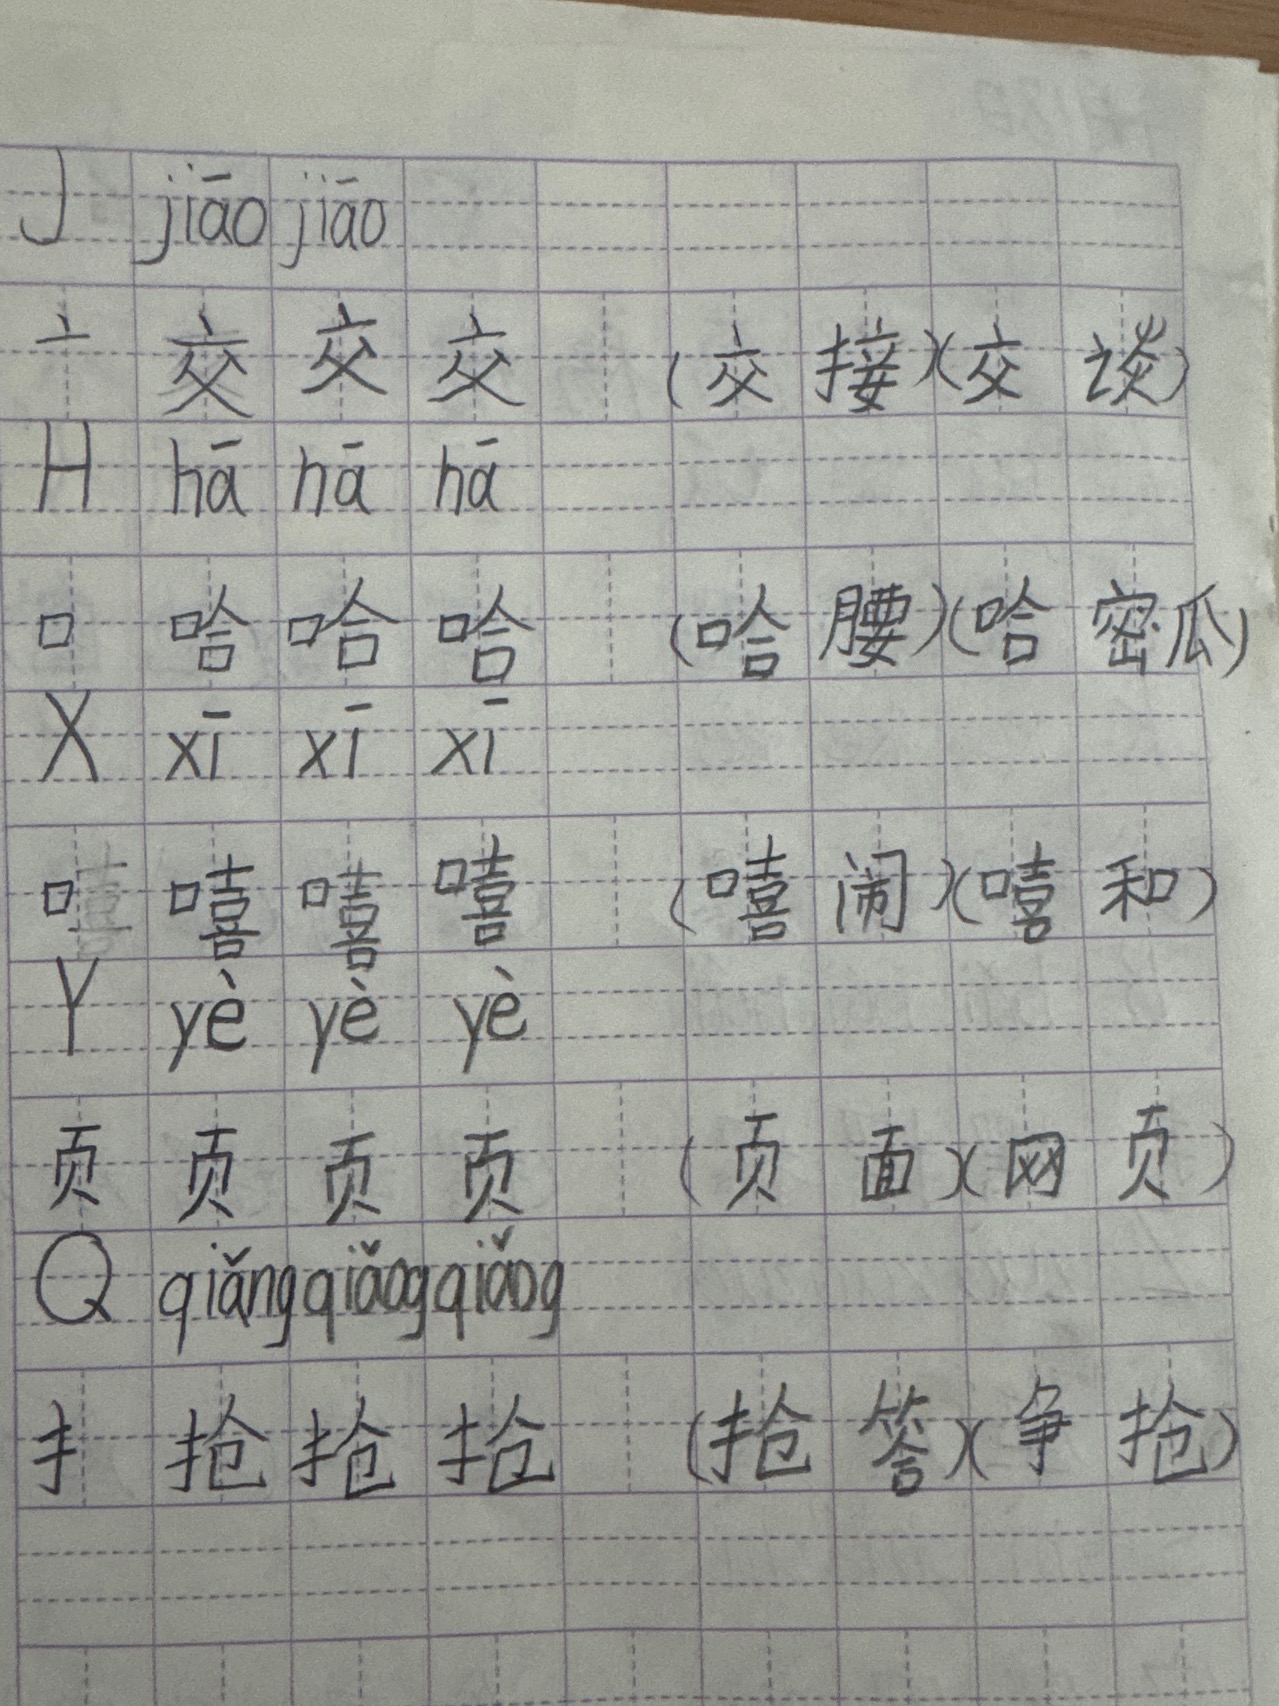 J jiāo jiāo
亠 交 交 交 (交接)(交谈)
H hā hā hā
口 哈 哈 哈 (哈腰)(哈密瓜)
X xī xī xī
口 嘻 嘻 嘻 (嘻闹)(嘻和)
Y yè yè yè
页 页 页 页 (页面)(网页)
Q qiǎng qiǎng qiǎng
扌 抢 抢 抢 (抢答)(争抢)